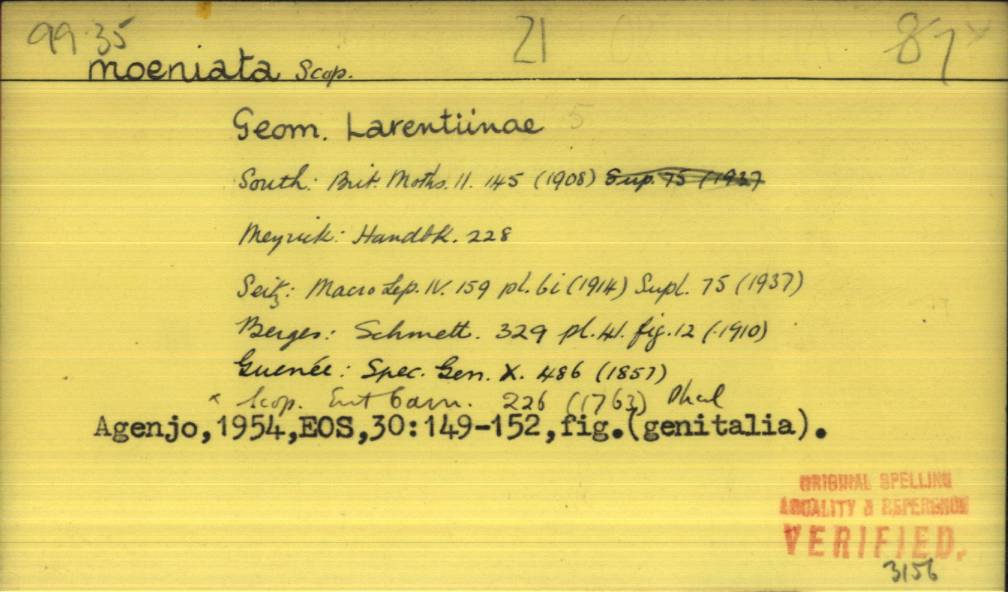 99.35 21 87
moeniata Scop.
Geom. Larentiinae 5
South: Brit. Moths. II. 145 (1908) Sup. 75 (1937
Meyrick: Handbk. 228
Seitz: Macro Lep. IV. 159 pl. 6i (1914) Supl. 75 (1937)
Berges: Schmett. 329 pl. 41. fig. 12 (1910)
Guenée: Spec. Gen. X. 486 (1857)
x Scop. Ent Carn. 226 (1763) Phal
Agenjo,1954,EOS,30:149-152,fig.(genitalia).
ORIGINAL SPELLING
LOCALITY & REFERENCE
VERIFIED.
3156